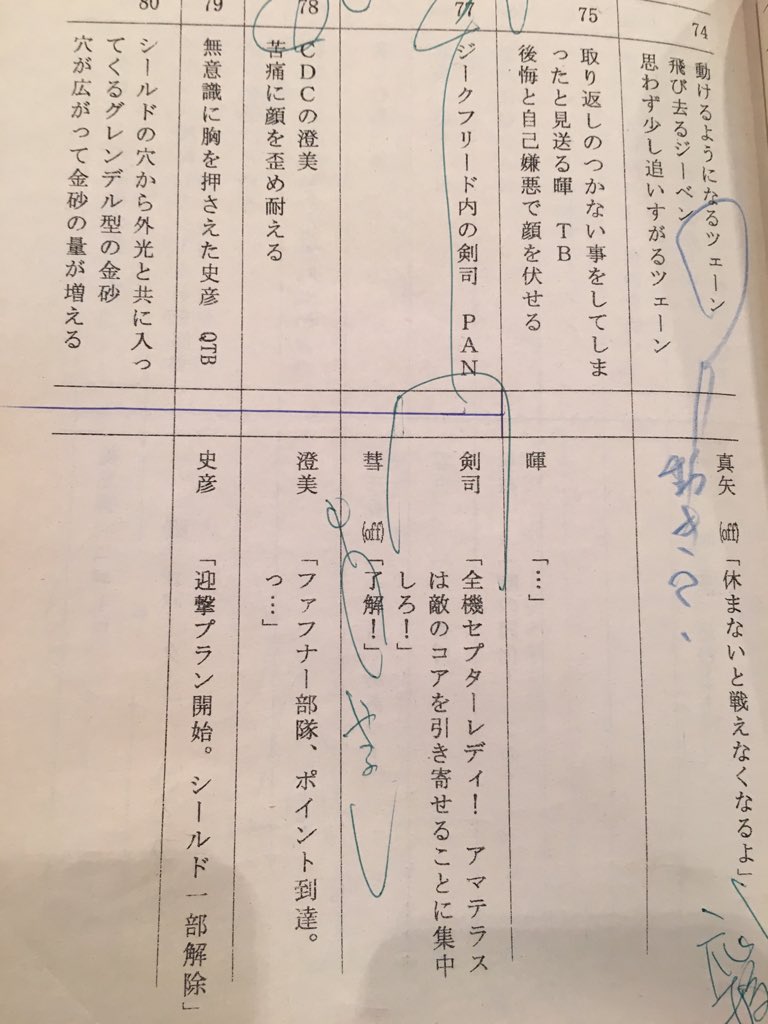 74
動けるようになるツェーン
飛び去るジーベン
思わず少し追いすがるツェーン
真矢 (off)「休まないと戦えなくなるよ」
75
取り返しのつかない事をしてしま
ったと見送る暉 TB
後悔と自己嫌悪で顔を伏せる
暉 「…」
77
ジークフリード内の剣司 PAN
剣司 「全機セプターレディ! アマテラス
は敵のコアを引き寄せることに集中
しろ!」
彗 (off)「了解!」
78
CDCの澄美
苦痛に顔を歪め耐える
澄美 「ファフナー部隊、ポイント到達。
っ…」
79
無意識に胸を押さえた史彦 QTB
史彦 「迎撃プラン開始。シールド一部解除」
80
シールドの穴から外光と共に入っ
てくるグレンデル型の金砂
穴が広がって金砂の量が増える